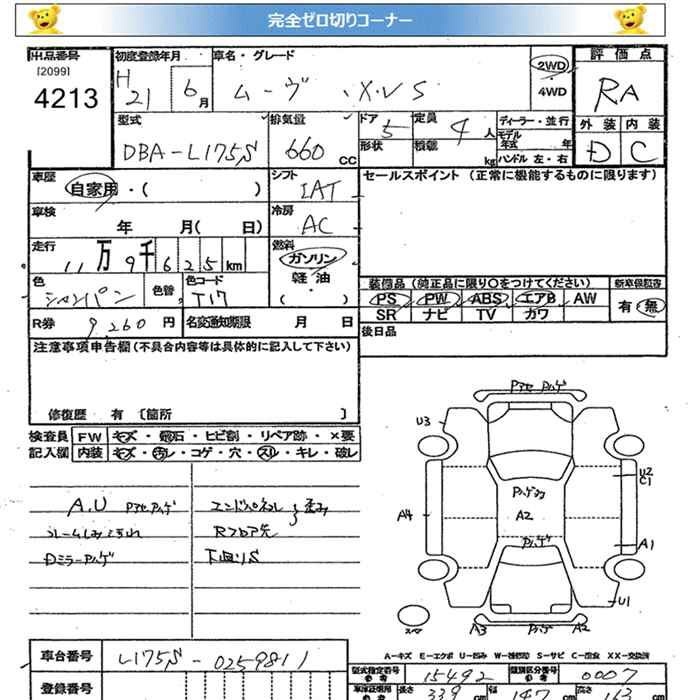 完全ゼロ切りコーナー
出品番号
[2099]
4213
初度登録年月
H 21 6月
車名・グレード
ムーヴ ・X VS
2WD
・
4WD
評価点
RA
外装 内装
D C
型式
DBA-L175S
排気量
660 cc
ドア 5
形状
定員 4人
積載 kg
ディーラー・並行
モデル
年式 年
ハンドル 左・右
車歴
自家用・( )
シフト
IAT
セールスポイント (正常に機能するものに限ります)
車検
年 月( 日)
冷房
AC
走行
11万9千625km
燃料
ガソリン
軽油
( )
色
シャンパン
色替
色コード
T17
装備品(純正品に限り○をつけてください)
PS PW ABS エアB AW
SR ナビ TV カワ
新車保証書
有・無
R券 9260円
名変通知期限 月 日
後日品
注意事項申告欄(不具合内容等は具体的に記入して下さい)
修復歴 有 〔箇所 〕
検査員 FW キズ・飛石・ヒビ割・リペア跡・×要
記入欄 内装 キズ・汚レ・コゲ・穴・スリ・キレ・破レ
A.U Pアセハゲ
ルームしみ汚れ
Dミラーハゲ
エンドパネル
Rフロア先
歪み
下廻りS
Pアセ ハゲ
U3
U2
C1
A4
A2
A1
Pハゲ
U1
スペア
A3 Pハゲ A2
A-キズ E-エクボ U-凹み W-補修跡 S-サビ C-腐食 XX-交換済
車台番号
L175S-0259811
型式指定番号
15492
類別区分番号
0007
登録番号
長さ 339cm 幅 147cm 高さ 163cm